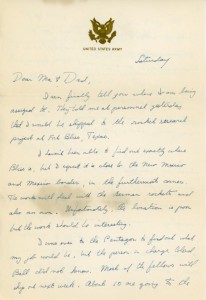 UNITED STATES ARMY
Saturday
Dear Mom & Dad,
I can finally tell you where I am being
assigned to. They told me at personnel yesterday
that I would be shipped to the rocket research
project at Fort Bliss, Texas.
I haven't been able to find out exactly where
Bliss is, but I know it is close to the New Mexico
and Mexico border, in the furthermost corner.
The work will deal with the German rockets and
also our own. Unfortunately, the location is poor
but the work should be interesting.
I was over to the Pentagon to find out what
my job would be, but the person in charge,
did not know. Most of the fellows will
ship out next week. About 50 are going to the